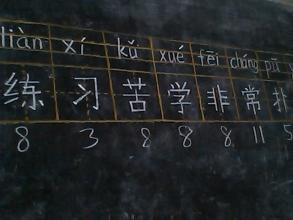 liàn xí kǔ xué fēi cháng
练 习 苦 学 非 常
8 3 8 8 8 11 5